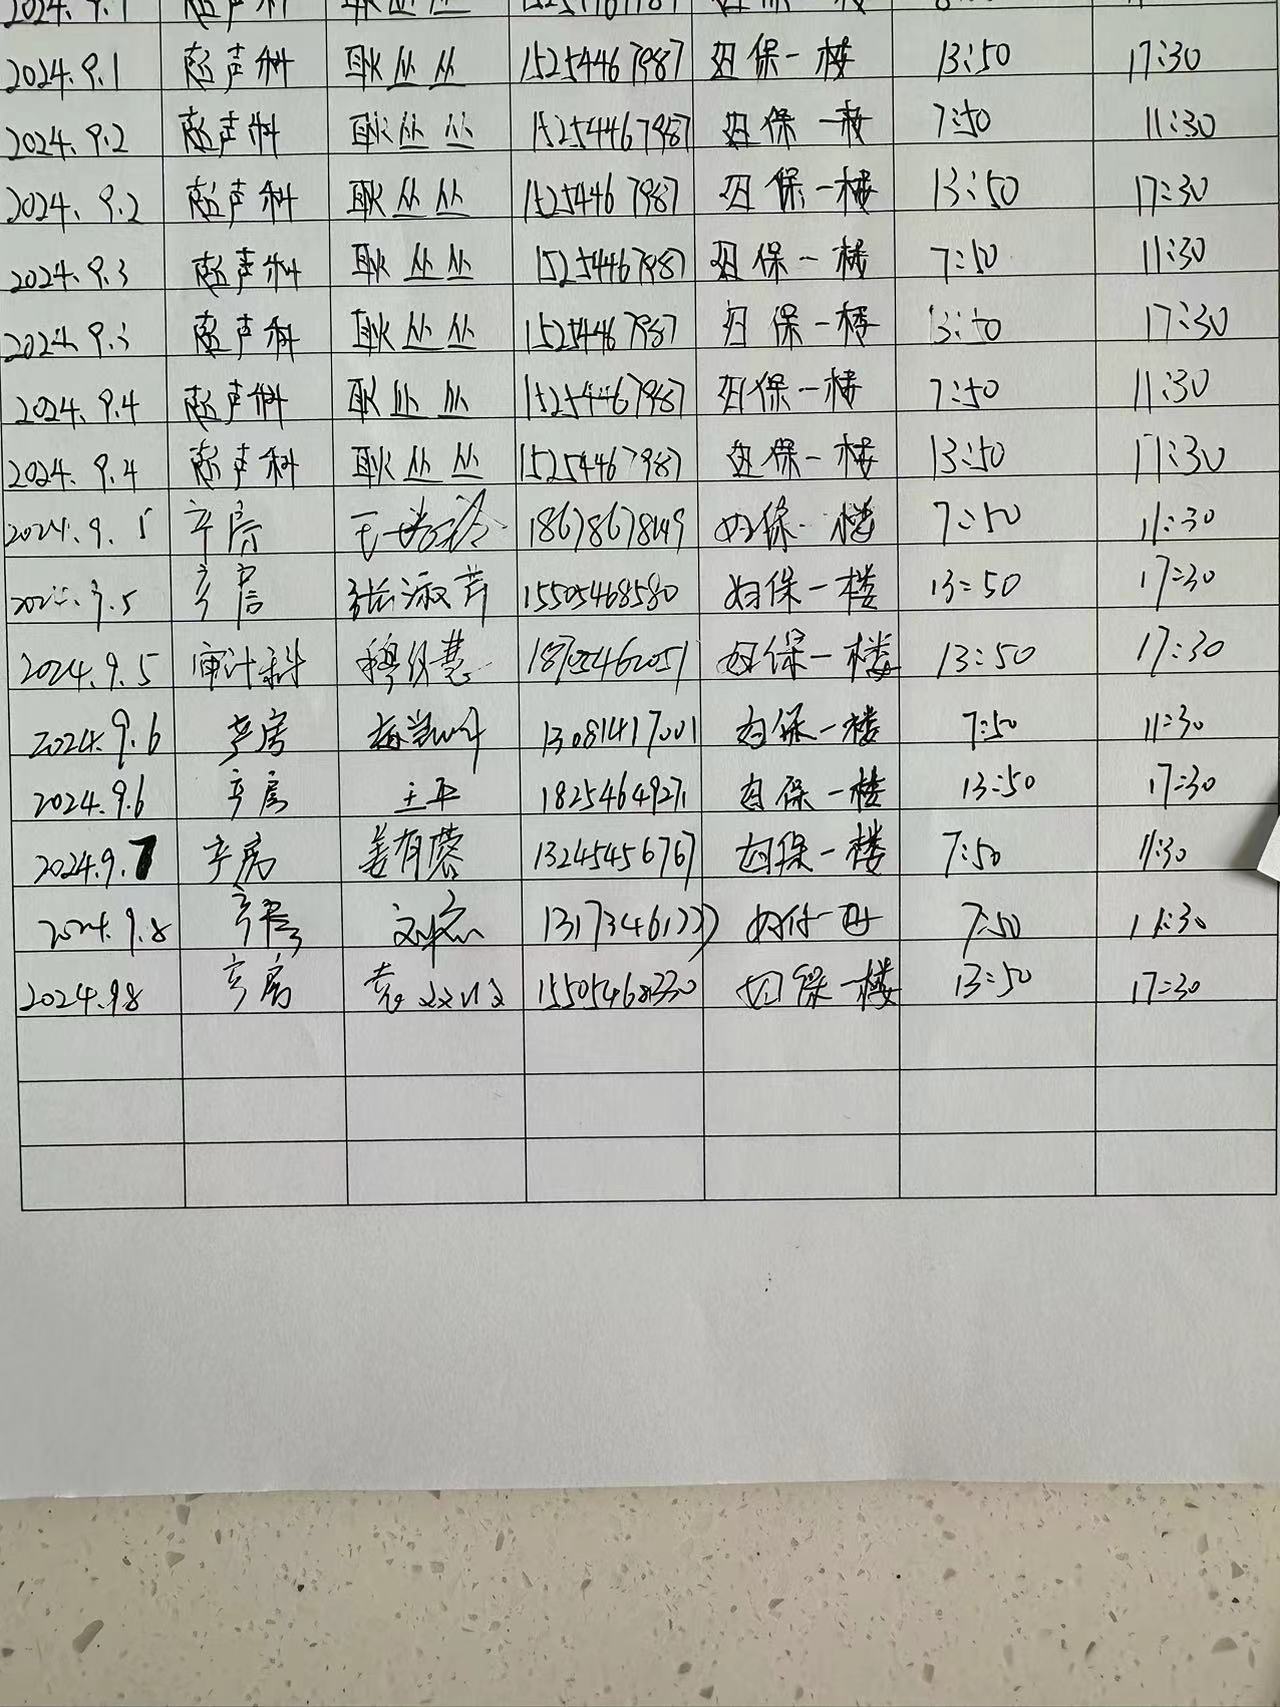 2024.9.1 超声科 耿丛丛 15254467987
2024.9.1 超声科 耿丛丛 15254467987 妇保一楼 13:50 17:30
2024.9.2 超声科 耿丛丛 15254467987 妇保一楼 7:50 11:30
2024.9.2 超声科 耿丛丛 15254467987 妇保一楼 13:50 17:30
2024.9.3 超声科 耿丛丛 15254467987 妇保一楼 7:50 11:30
2024.9.3 超声科 耿丛丛 15254467987 妇保一楼 13:50 17:30
2024.9.4 超声科 耿丛丛 15254467987 妇保一楼 7:50 11:30
2024.9.4 超声科 耿丛丛 15254467987 妇保一楼 13:50 17:30
2024.9.5 产房 18678678149 妇保一楼 7:50 11:30
2024.9.5 产房 张淑芹 15505468580 妇保一楼 13:50 17:30
2024.9.5 审计科 妇保一楼 13:50 17:30
2024.9.6 产房 13081417001 妇保一楼 7:50 11:30
2024.9.6 产房 王平 18254649271 妇保一楼 13:50 17:30
2024.9.7 产房 姜有蓉 13245456767 妇保一楼 7:50 11:30
2024.9.8 产房 7:50 11:30
2024.9.8 产房 15505468330 妇保一楼 13:50 17:30